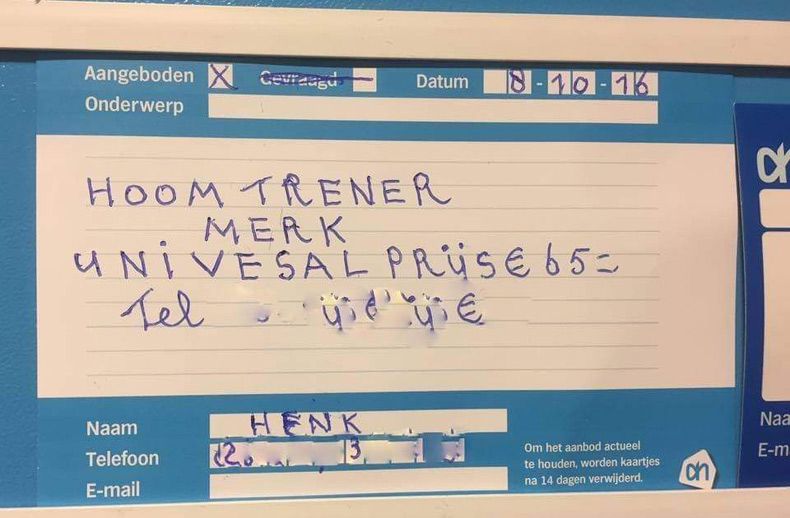 Aangeboden X Gevraagd Datum 8-10-16
Onderwerp
HOOM TRENER
MERK
UNIVESAL PRIJS € 65=
Tel
Naam HENK
Telefoon
E-mail
Om het aanbod actueel
te houden, worden kaartjes
na 14 dagen verwijderd.
ah
Naa
E-m